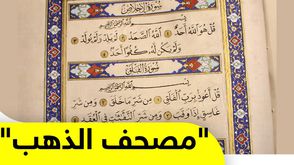 سورة الإخلاص
قُلْ هُوَ اللَّهُ أَحَدٌ ۝ اللَّهُ الصَّمَدُ ۝ لَمْ يَلِدْ وَلَمْ يُولَدْ ۝
وَلَمْ يَكُنْ لَهُ كُفُوًا أَحَدٌ ۝
سورة الفلق
قُلْ أَعُوذُ بِرَبِّ الْفَلَقِ ۝ مِنْ شَرِّ مَا خَلَقَ ۝ وَمِنْ شَرِّ
غَاسِقٍ إِذَا وَقَبَ ۝ وَمِنْ شَرِّ النَّفَّاثَاتِ فِي الْعُقَدِ
"مصحف الذهب"